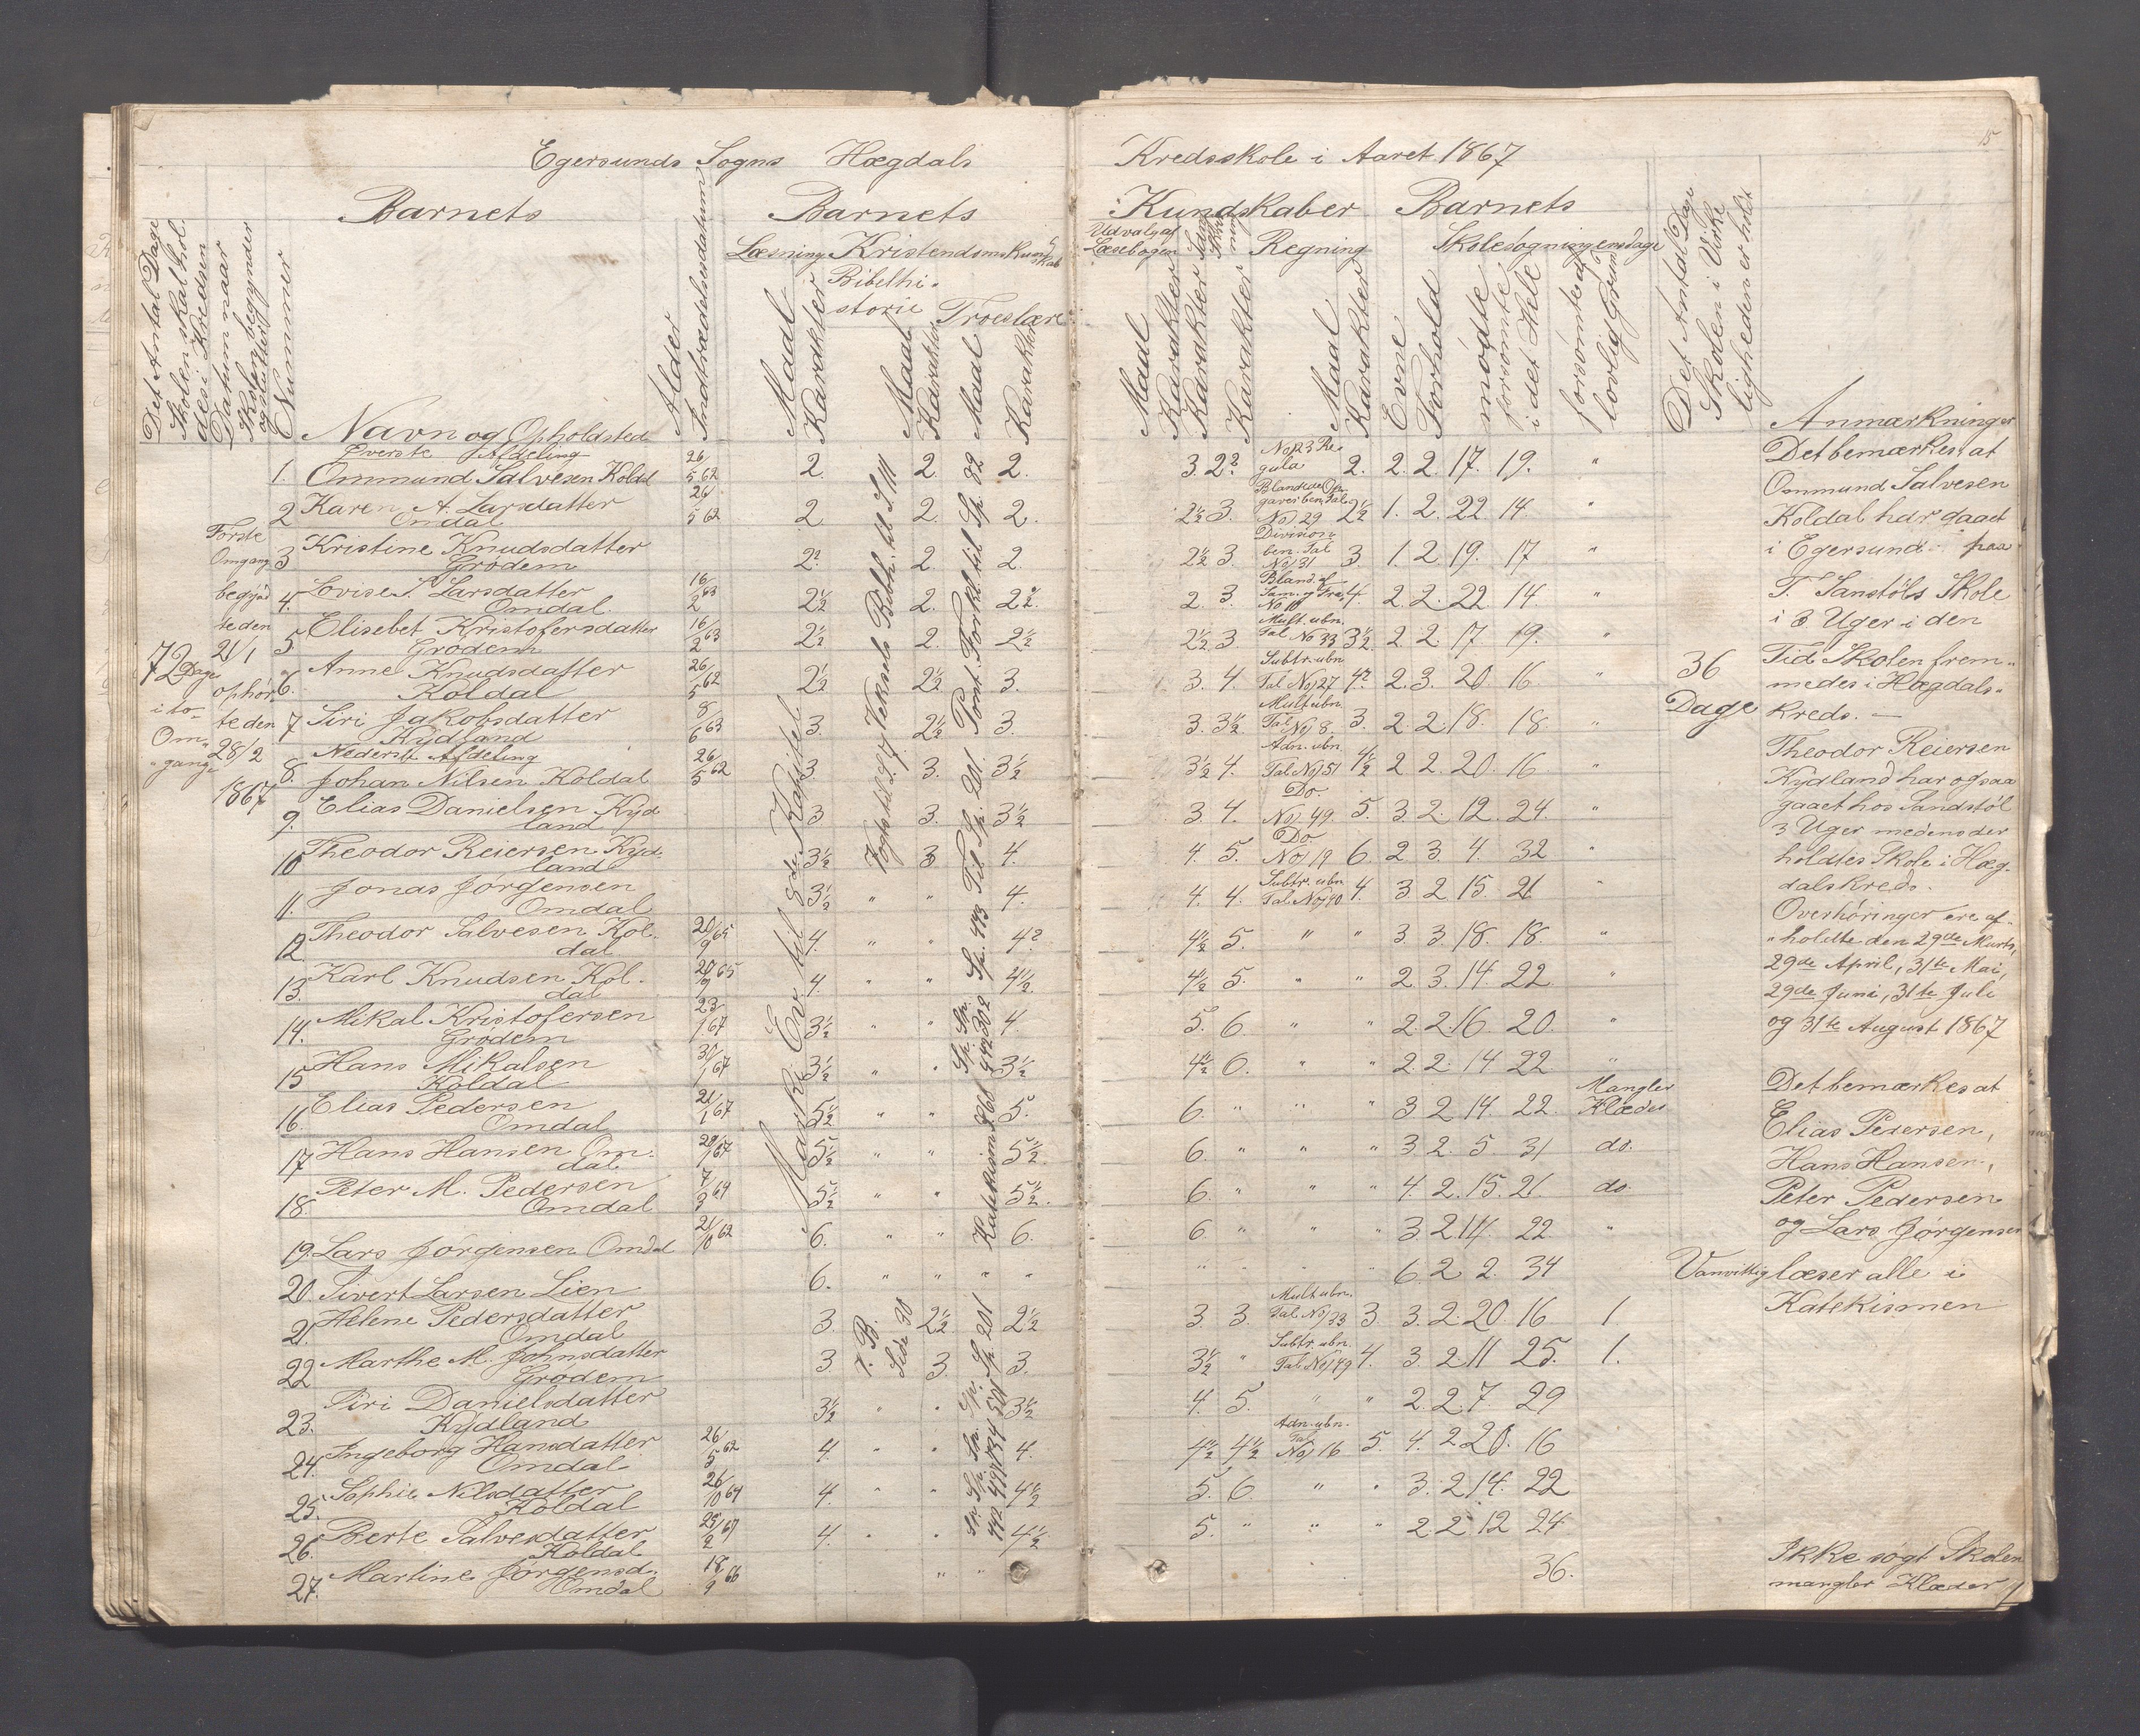 15
Egersunds Sogns Hægdals Kredsskole i Aaret 1867
Barnets Barnets Kundskaber Barnets
Det Antal Dage Skolen skal holdes i Kredsen
Datum naar Skolen begynder og slutter
Nummer
Navn og Opholdsted
Alder
Indtrædelsesdatum
Læsning Kristendomskundskab
Bibelhistorie Troeslære
Maal Karakter Maal Karakter Maal Karakter
Udvalg af Læsebogen
Sang
Regning
Skolesøgningensdage
Maal Karakter Karakter Karakter Maal Karakter
Evne Forhold
mødte
forsømte i det Hele
forsømte af lovlig Grund
Det Antal Dage Skolen i Virkeligheden er holdt
Anmærkninger
72 Dage i to Omgange
Første Omgang begynte den 21/1 ophørte den 28/2 1867
Øverste Afdeling
1. Ommund Salvesen Koldal 26/5 62 2. 2. 2. 3. 2? No 23 Regula 2. 2. 2. 17. 19. "
2 Karen A. Larsdatter Omdal 26/5 62 2 2. 2. 2½ 3. No 29 2½ 1. 2. 22. 14. "
3 Kristine Knudsdatter Grødem 2? 2. 2. 2½ 3. Division ben. Tal No 31 3. 1. 2. 19. 17 "
4. Lovise S. Larsdatter Omdal 16/2 63 2½ 2. 2½. 2 3. Bland. af No 10 4. 2. 2. 22. 14. "
5. Elisebet Kristofersdatter Grødem 16/2 63 2½ 2. 2½ 2½ 3 Mult. ubn. Tal No 33 3½ 2. 2. 17 19. "
6. Anne Knudsdatter Koldal 26/5 62 2½ 2½ 3. 3. 4. Subtr. ubn Tal No 27 4? 2. 3. 20. 16 "
7 Siri Jakobsdatter Kydland 8/6 63 3. 2½ 3. 3. 3½. Mult ubn. Tal No 8. 3. 2. 2. 18. 18. "
Nederste Afdeling
8. Johan Nilsen Koldal 26/5 62 3. 3. 3½ 3½ 4. Adn. ubn. Tal No 51 4½ 2 2. 20. 16 "
9. Elias Danielsen Kydland 3 3. 3½ 3. 4. Do. No 49. 5. 3. 2. 12. 24. "
10 Theodor Reiersen Kydland 3½ 3 4. 4. 5. Do. No 19 6. 2 3. 4. 32 "
11. Jonas Jørgensen Omdal 3½ " " 4. 4. 4. Subtr. ubn Tal No 40 4. 3 2. 15. 21 "
12. Theodor Salvesen Koldal. 20/9 65 4. " " 4? 4½ 5. " " 3. 3. 18. 18. "
13. Karl Knudsen Koldal 20/9 65 4. " " 4½. 4½ 5. " " 2. 3. 14. 22. "
14. Mikal Kristofersen Grødem 23/1 67 3½ " " 4. 5. 6. " " 2. 2. 16. 20. "
15 Hans Mikalsen Koldal 30/1 67 3½ " " 3½ 4½ 6. " " 2. 2. 14 22. "
16. Elias Pedersen Omdal 21/1 67 5½ " " 5. 6. " " " 3 2. 14. 22. Mangler Klæder
17 Hans Hansen Omdal. 29/1 67 5½ " " 5½. 6. " " " 3. 2. 5 31 do.
18 Peter M. Pedersen Omdal 7/3 64 5½ " " 5½. 6. " " " 4. 2. 15. 21. do.
19. Lars Jørgensen Omdal 21/10 62 6. " " 6. 6. " " " 3. 2. 14. 22. "
20. Sivert Larsen Lien 6. " " " " " " " " 6. 2 2. 34 Vanvittig
21. Helene Pedersdatter Omdal 3. 2½ 2½ 3. 3. Mult ubn. Tal No 33 3 3. 2. 20. 16 1.
22 Marthe M. Johnsdatter Grødem 3. 3. 3. 3½ " Subtr. ubn. Tal No 49 4. 3. 2. 11 25. 1.
23. Siri Danielsdatter Kydland 3½ " " 3½ 4. 5. " " 2. 2. 7. 29
24. Ingeborg Hansdatter Omdal 26/5 62 4. " " 4. 4½ 4½ Adn. ubn. Tal No 16 5. 4. 2. 20. 16
25. Sophie Nilsdatter Koldal 26/10 64 4. " " 4½ 5. 6. " " 3. 2. 14. 22
26. Berte Salvesdatter Koldal 25/2 67 4. " " 4½. 5. " " " 2. 2 12 24
27. Martine Jørgensd. Omdal 18/9 66 " " 36.
Maski Ev til 8de Kapitel
Vogts til S. 7 Veksels Bibh. til S 111
Sp. 473 Til Sp. 201 Pont. Forkl. til Sp. 82
Katekism
Side 30
Sp. 201
36 Dage
Det bemærkes at
Ommund Salvesen
Koldal har gaaet
i Egersund paa
T. Sanstøls Skole
i 3 Uger i den
Tid Skolen frem-
medes i Hægdals-
kreds. —
Theodor Reiersen
Kydland har ogsaa
gaaet hos Sandstøl
3 Uger medens der
holdtes Skole i Hæg-
dalskreds.
Overhøringer ere af-
holdte den 29de Marts,
29de April, 31te Mai,
29de Juni, 31te Juli
og 31te August 1867
Det bemærkes at
Elias Pedersen,
Hans Hansen,
Peter Pedersen
og Lars Jørgensen
læser alle i
Katekismen
Ikke søgt Skolen
mangler Klæder